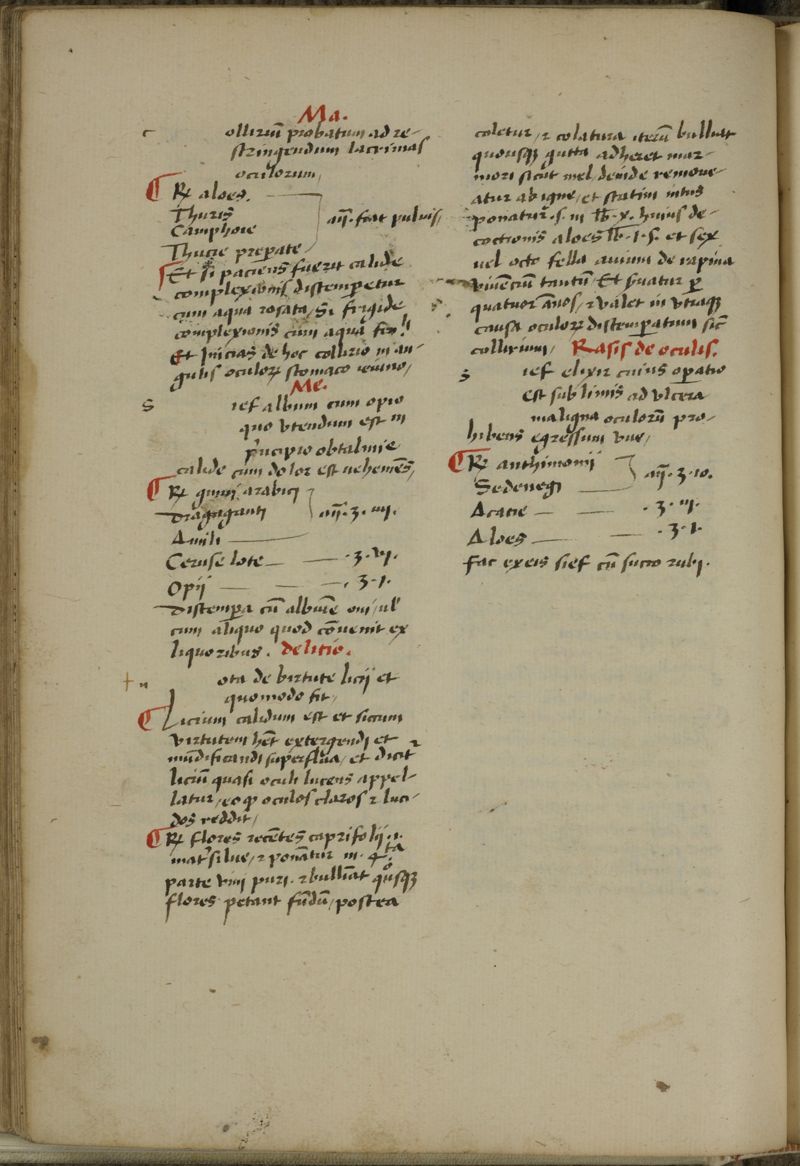 Ma.
c ollirium probatum ad re-
stringendum lacrimas
oculorum/
¶ ℞ aloes.
Thuris
Camphore
añ. fiat pulvis/
Thucie preparate
Et si paciens fuerit calide
complexionis distemperetur
cum aqua rosata, Si frigide
complexionis cum aqua
Et inicias de hoc collirio in an-
gulis oculorum stomaco ieiuno/
Me.
S ief album cum opio
quo utendum est in
principio obtalmie
calide cum dolor est vehemens/
¶ ℞ gummi arabici
Draganganti
añ. ʒ. iij.
Amili
Ceruse lote — — .ʒ. vj.
Opij — — — . ʒ. j.
Distempera cū albumīe oui/ ul'
cum aliquo quod cōuenit ex
liquoribus. De licio.
+ n ota de birtute licij et
quomodo fit/
¶ Licium calidum est et siccum
virtutem hēt extergendi et
mūdificandi superflua/ et dicit
liciū quasi oculi lucens appel-
latur/ eo qd oculos claros ⁊ luci-
dos reddit/
¶ ℞ flores recētes caprifolij .i.
matrisilue/ ⁊ ponātur in .4ta
parte vini puri. ⁊ bulliāt quousqꝫ
flores petant fūdū/ postea
coletur/ ⁊ colatura iterū bulliat
quousqꝫ gutta adheret mar-
mori sicut mel deinde remove-
atur ab igne/ et statim intus
ponatur .s. in lb. x. huius de-
coctionis aloes lb. j. s. et sex
uel octo fella avium de rapina
viuēciū tantū Et seruatur per
quatuor ānos/ ⁊ valet in utraqꝫ
causa oculorum distemperatum sic
collirium/ Rasis de oculis.
S ief elixir cuius operatio
est sublimis ad vlcera
maligna oculorū pro-
hibens egressum vue/
¶ ℞ anthimonij
Sedenegi
añ. ʒ. 10.
Acacie — — . ʒ. iij.
Aloes — — . ʒ. j.
fac ex eis sief cū succo rubj.